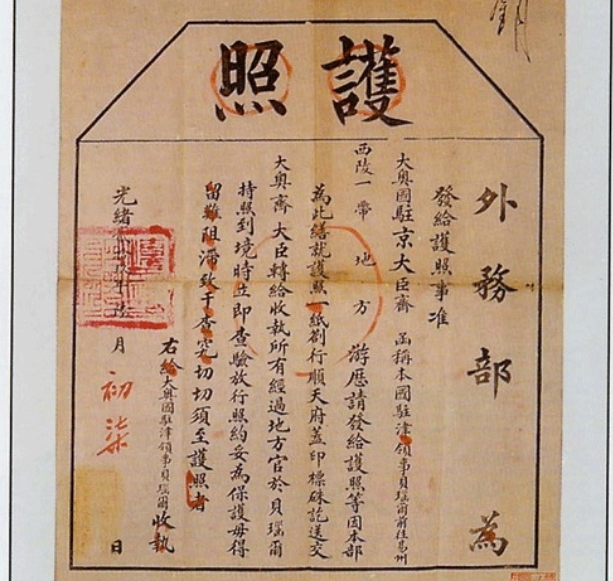 護照
外務部 為
發給護照事准
大奧國駐京大臣齋 函稱本國駐津領事貝瑙爾前往易州
西陵一帶地方 游歷請發給護照等因本部
為此繕就護照一紙劄行順天府蓋印標硃訖送交
大奧齋大臣轉給收執所有經過地方官於貝瑙爾
持照到境時立即查驗放行照約妥為保護毋得
留難阻滯致干查究切切須至護照者
右給大奧國駐津領事貝瑙爾收執
光緒 年 月初柒日